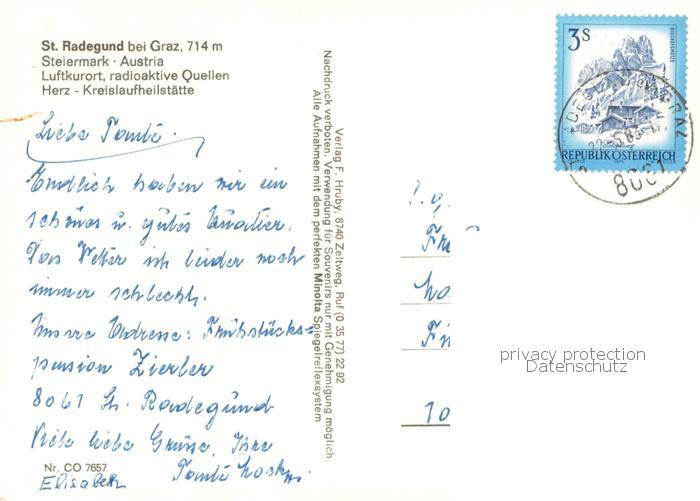 St. Radegund bei Graz, 714 m
Steiermark · Austria
Luftkurort, radioaktive Quellen
Herz - Kreislaufheilstätte
Liebe Tante.
Endlich haben wir ein
schönes u. gutes Quatier.
Das Wetter ist leider noch
immer schlecht.
Unsere Adresse: Frühstücks=
pension Zierler
8061 St. Radegund
Viele liebe Grüsse, Ihre
Nr. CO 7657
Elisabeth Tante
Verlag F. Hruby, 8740 Zeltweg, Ruf (0 35 77) 22 92
Nachdruck verboten. Verwendung für Souvenirs nur mit Genehmigung möglich
Alle Aufnahmen mit dem perfekten Minolta Spiegelreflexsystem
3 S
REPUBLIK ÖSTERREICH
8061
privacy protection
Datenschutz